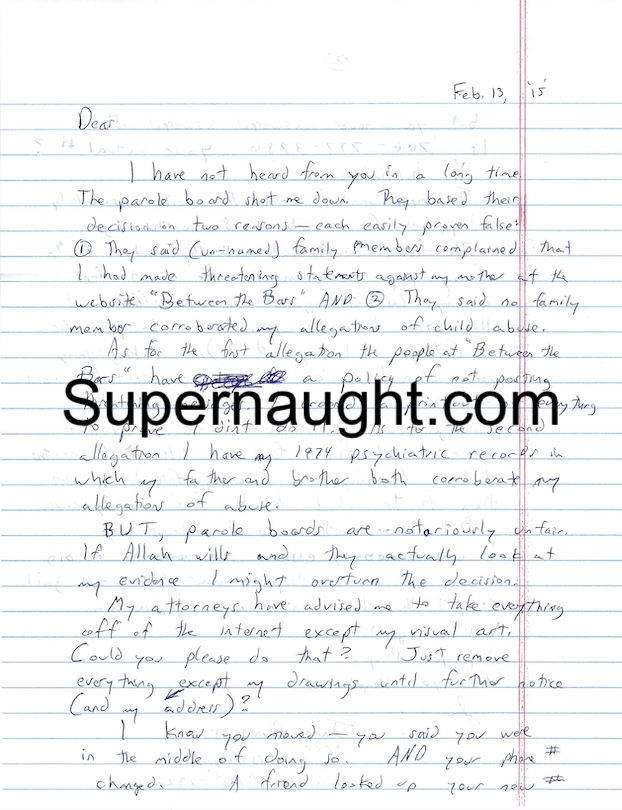 Feb. 13, '15
Dear
I have not heard from you in a long time.
The parole board shot me down. They based their
decision on two reasons — each easily proven false:
① They said (un-named) family members complained that
I had made threatening statements against my mother at the
website "Between the Bars" AND ② They said no family
member corroborated my allegations of child abuse.
As for the first allegation the people at "Between the
Bars" have a policy of not posting
Supernaught.com
threatning messages. I everything
to prove I didnt do it. As for the second
allegation I have my 1974 psychiatric records in
which my father and brother both corroborate my
allegations of abuse.
BUT, parole boards are notoriously unfair.
If Allah wills and they actually look at
my evidence I might overturn the decision.
My attorneys have advised me to take everything
off of the internet except my visual art.
Could you please do that? Just remove
everything except my drawings until further notice
(and my address)?
I know you moved — you said you were
in the middle of doing so. AND your phone #
changed. A friend looked up your new #